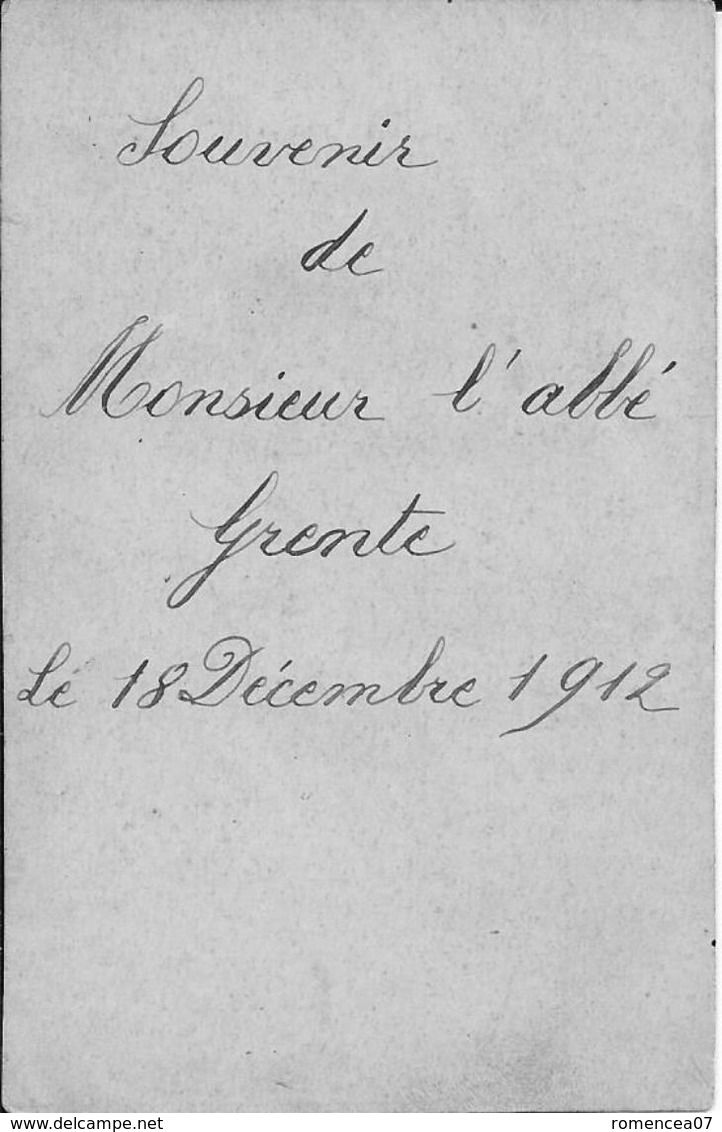 Souvenir
de
Monsieur l'abbé
Grente
Le 18 Décembre 1912
www.delcampe.net
romencea07